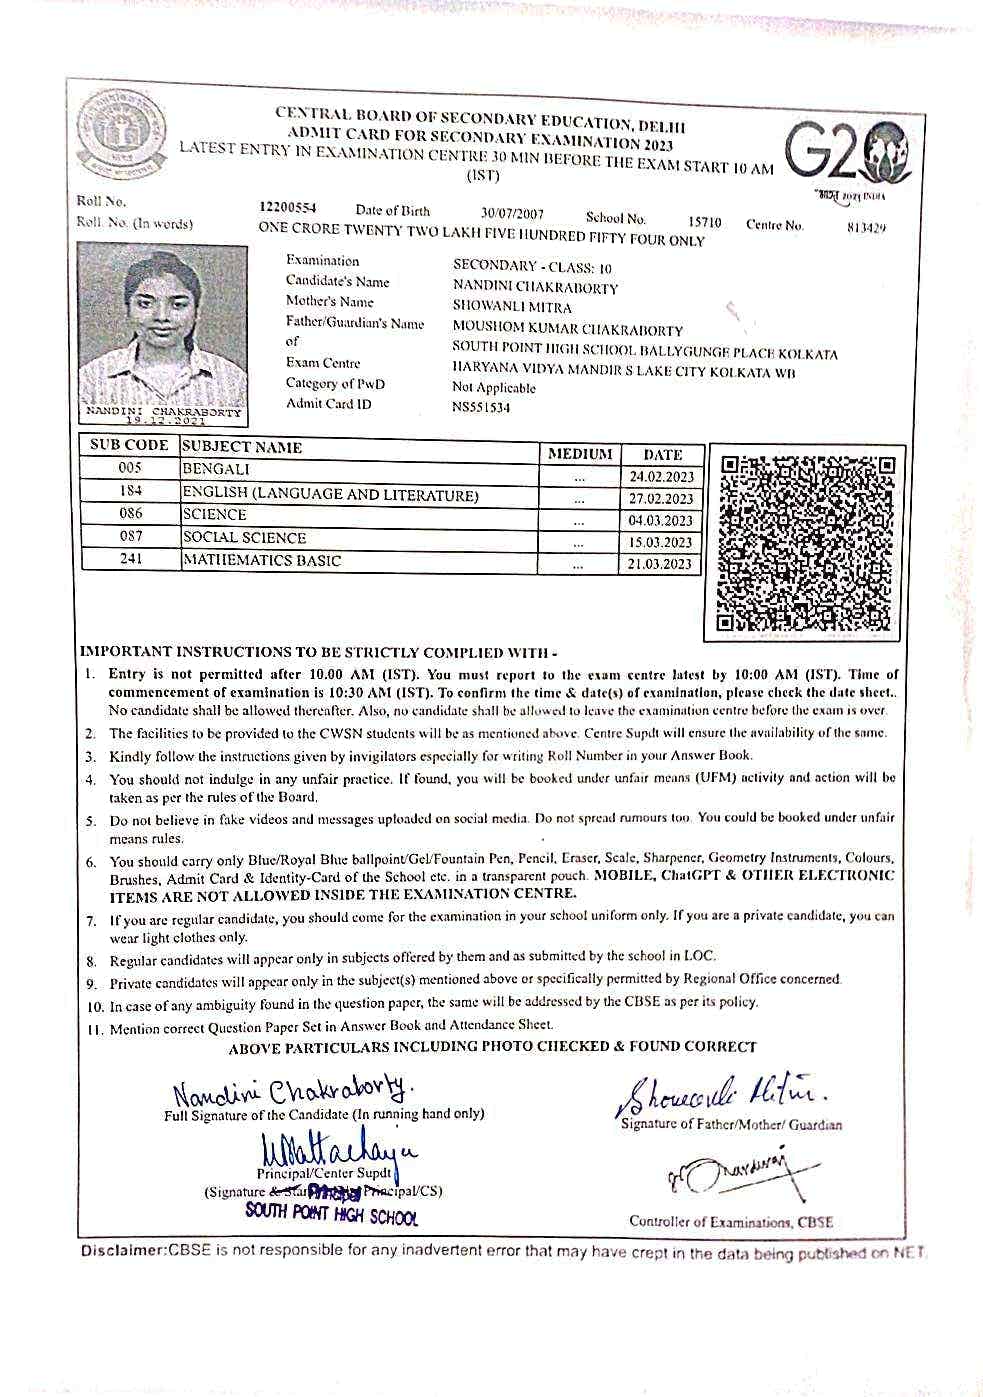 CENTRAL BOARD OF SECONDARY EDUCATION, DELHI
ADMIT CARD FOR SECONDARY EXAMINATION 2023
LATEST ENTRY IN EXAMINATION CENTRE 30 MIN BEFORE THE EXAM START 10 AM
(IST)
G20
भारत 2023 INDIA
Roll No. 12200554 Date of Birth 30/07/2007 School No. 15710 Centre No. 813429
Roll. No. (In words) ONE CRORE TWENTY TWO LAKH FIVE HUNDRED FIFTY FOUR ONLY
Examination SECONDARY - CLASS: 10
Candidate's Name NANDINI CHAKRABORTY
Mother's Name SHOWANLI MITRA
Father/Guardian's Name MOUSHOM KUMAR CHAKRABORTY
of SOUTH POINT HIGH SCHOOL BALLYGUNGE PLACE KOLKATA
Exam Centre HARYANA VIDYA MANDIR S LAKE CITY KOLKATA WB
Category of PwD Not Applicable
Admit Card ID NS551534
NANDINI CHAKRABORTY
19.12.2021
SUB CODE SUBJECT NAME MEDIUM DATE
005 BENGALI ... 24.02.2023
184 ENGLISH (LANGUAGE AND LITERATURE) ... 27.02.2023
086 SCIENCE ... 04.03.2023
087 SOCIAL SCIENCE ... 15.03.2023
241 MATHEMATICS BASIC ... 21.03.2023
IMPORTANT INSTRUCTIONS TO BE STRICTLY COMPLIED WITH -
1. Entry is not permitted after 10.00 AM (IST). You must report to the exam centre latest by 10:00 AM (IST). Time of
commencement of examination is 10:30 AM (IST). To confirm the time & date(s) of examination, please check the date sheet..
No candidate shall be allowed thereafter. Also, no candidate shall be allowed to leave the examination centre before the exam is over.
2. The facilities to be provided to the CWSN students will be as mentioned above. Centre Supdt will ensure the availability of the same.
3. Kindly follow the instructions given by invigilators especially for writing Roll Number in your Answer Book.
4. You should not indulge in any unfair practice. If found, you will be booked under unfair means (UFM) activity and action will be
taken as per the rules of the Board.
5. Do not believe in fake videos and messages uploaded on social media. Do not spread rumours too. You could be booked under unfair
means rules.
6. You should carry only Blue/Royal Blue ballpoint/Gel/Fountain Pen, Pencil, Eraser, Scale, Sharpener, Geometry Instruments, Colours,
Brushes, Admit Card & Identity-Card of the School etc. in a transparent pouch. MOBILE, ChatGPT & OTHER ELECTRONIC
ITEMS ARE NOT ALLOWED INSIDE THE EXAMINATION CENTRE.
7. If you are regular candidate, you should come for the examination in your school uniform only. If you are a private candidate, you can
wear light clothes only.
8. Regular candidates will appear only in subjects offered by them and as submitted by the school in LOC.
9. Private candidates will appear only in the subject(s) mentioned above or specifically permitted by Regional Office concerned.
10. In case of any ambiguity found in the question paper, the same will be addressed by the CBSE as per its policy.
11. Mention correct Question Paper Set in Answer Book and Attendance Sheet.
ABOVE PARTICULARS INCLUDING PHOTO CHECKED & FOUND CORRECT
Nandini Chakraborty.
Full Signature of the Candidate (In running hand only)
Signature of Father/Mother/ Guardian
Principal/Center Supdt
(Signature & Principal/CS)
Principal
SOUTH POINT HIGH SCHOOL
Controller of Examinations, CBSE
Disclaimer:CBSE is not responsible for any inadvertent error that may have crept in the data being published on NET.